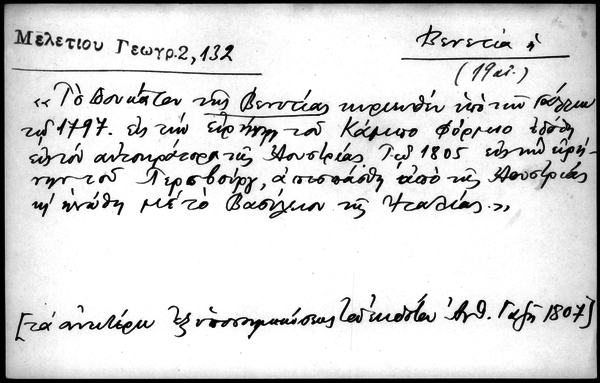 Μελετίου Γεωγρ. 2, 132
Βενετία ἡ
(19 αἰ.)
«Τὸ Δουκάτον τῆς Βενετίας κυριευθὲν ὑπὸ τῶν Γάλλων
τῷ 1797. εἰς τὴν εἰρήνην τοῦ Κάμπο Φόρμιο ἐδόθη
εἰς τὸν αὐτοκράτορα τῆς Αουστρίας Τῷ 1805 εἰς τὴν εἰρή-
νην τοῦ Πρεσβούργ, ἀπεσπάσθη ἀπὸ τῆς Αουστρίας
κ' ἡνώθη μὲ τὸ Βασίλειον τῆς Ἰταλίας.»
[τὰ ἀνωτέρω ἐξ ὑποσημειώσεως τοῦ ἐκδότου Ἀνθ. Γαζῆ 1807]